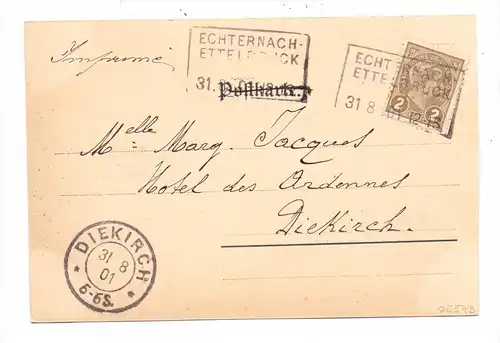 ECHTERNACH-
ETTELBRUCK
31. 8 01
ECHTERNACH-
ETTELBRUCK
31 8 01
2 2
Imprimé
Postkarte.
Melle Marg. Jacques
Hotel des Ardennes
Diekirch.
DIEKIRCH
31 8
01
6-6S.
26593